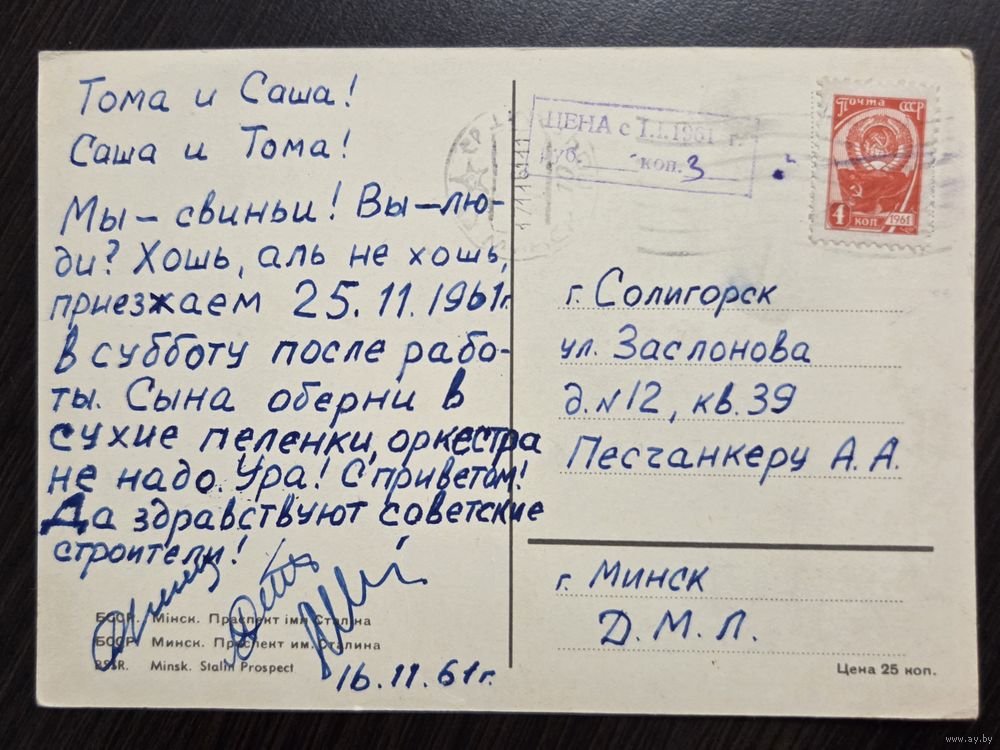 Тома и Саша!
Саша и Тома!
Мы – свиньи! Вы – лю-
ди? Хошь, аль не хошь,
приезжаем 25.11.1961г.
в субботу после рабо-
ты. Сына оберни в
сухие пеленки, оркестра
не надо. Ура! С приветом!
Да здравствуют советские
строители!
16.11.61г.
БССР. Мінск. Праспект імя Сталіна
БССР. Минск. Проспект им. Сталина
BSSR. Minsk. Stalin Prospect
ЦЕНА с 1.1.1961 г.
руб. коп. 3
Почта СССР
4 коп 1961
г. Солигорск
ул. Заслонова
д. N 12, кв. 39
Песчанкеру А. А.
г. Минск
Д. М. Л.
Цена 25 коп.
www.ay.by